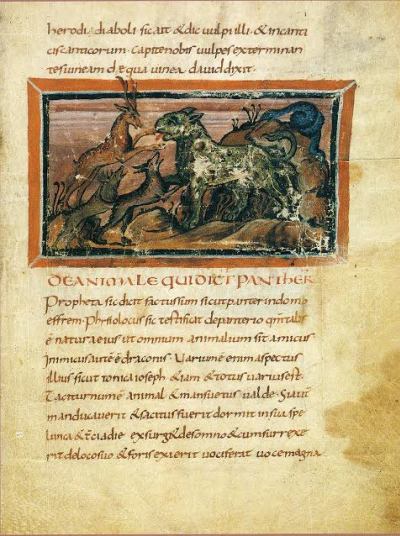 herodi diaboli sicait & dic vulpi illi. & in canti
cis canticorum. capite nobis vulpes exterminan
tes vineam. de qua vinea david dixit.
DE ANIMALE QUI DICT PANTHER
Propheta sic dicit factus sum sicut panter in domo
effrem. Phisiolocus sic testificat de panterio qm talis
ē natura eius ut omnium animalium sit amicus
inimicus autē ē draconis. Varium ē enim aspectus
illius sicut tonica ioseph & iam & totus varius est.
Taciturnum ē animal & mansuetus valde. Si aut
manducaverit & saciatus fuerit dormit in sua spe
lunca & tercia die exsurg& de somno & cum surrexe
rit de loco suo & foris exierit vociferat voce magna